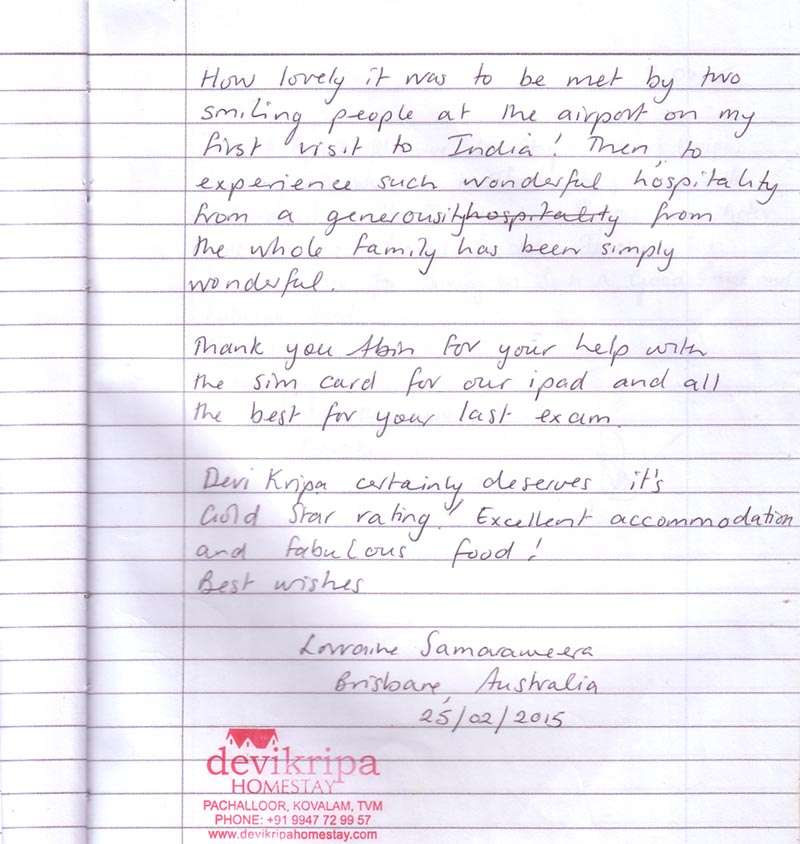 How lovely it was to be met by two
smiling people at the airport on my
first visit to India! Then, to
experience such wonderful hospitality
from a generousity hospitality from
the whole family has been simply
wonderful.
Thank you Abin for your help with
the sim card for our ipad and all
the best for your last exam.
Devi Kripa certainly deserves it's
Gold Star rating! Excellent accommodation
and fabulous food!
Best wishes
Lorraine Samaraweera
Brisbane, Australia
25/02/2015
devikripa
HOMESTAY
PACHALLOOR, KOVALAM, TVM
PHONE: +91 9947 72 99 57
www.devikripahomestay.com